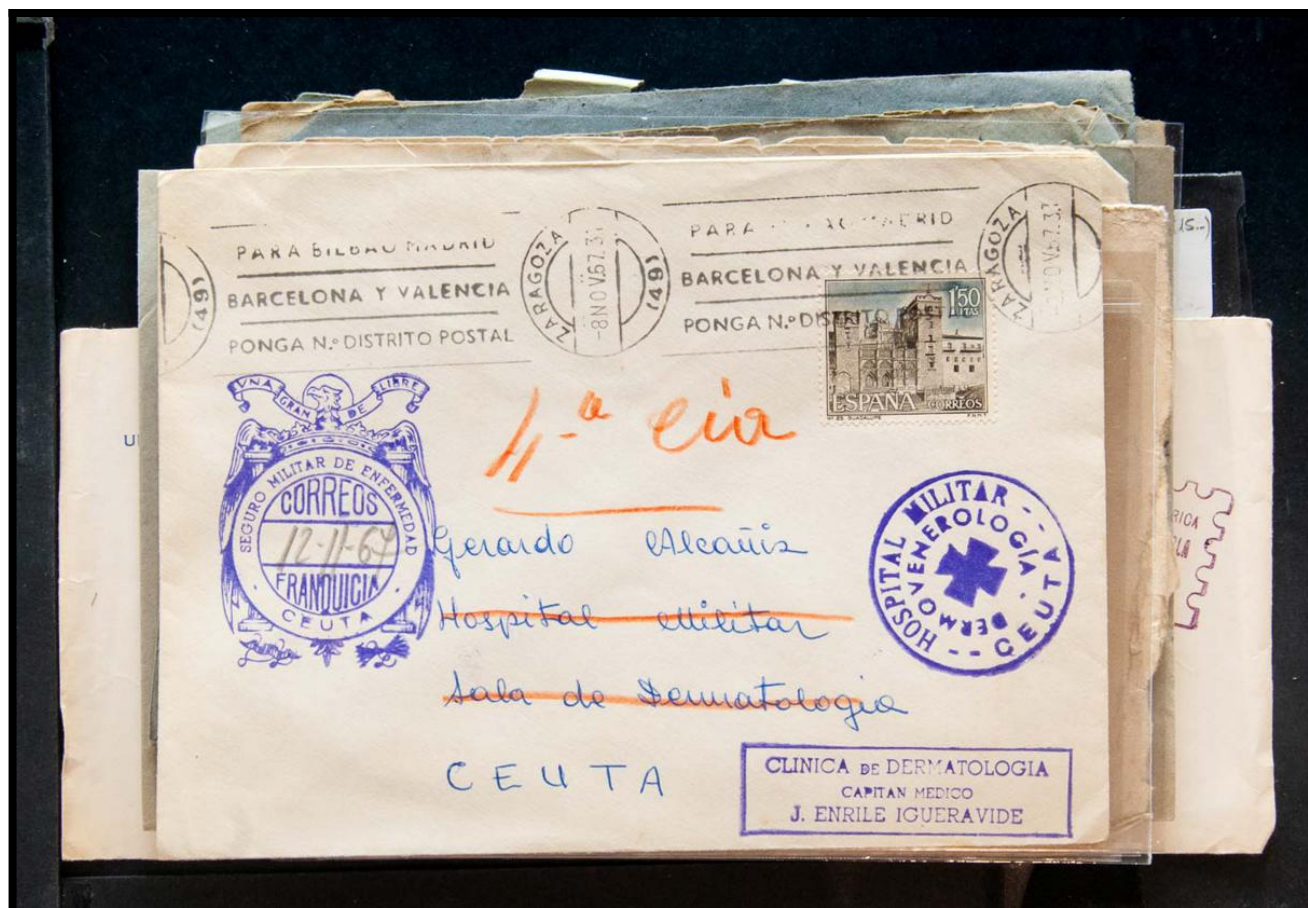 PARA BILBAO MADRID
BARCELONA Y VALENCIA
PONGA N.º DISTRITO POSTAL
(49)
ZARAGOZA
-8 NOV.67.3
(49)
PARA MADRID
BARCELONA Y VALENCIA
PONGA N.º DISTRITO
ZARAGOZA
NOV.67.3
15..)
1'50
PTAS
ESPAÑA CORREOS
GUADALUPE F.N.M.T.
UNA GRANDE LIBRE
SEGURO MILITAR DE ENFERMEDAD
CORREOS
12-11-67
FRANQUICIA
CEUTA
4-ª cia
Gerardo Alcañiz
Hospital Militar
Sala de Dermatologia
CEUTA
HOSPITAL MILITAR -- CEUTA --
DERMOVENEROLOGIA
CLINICA DE DERMATOLOGIA
CAPITAN MEDICO
J. ENRILE IGUERAVIDE
U
RICA